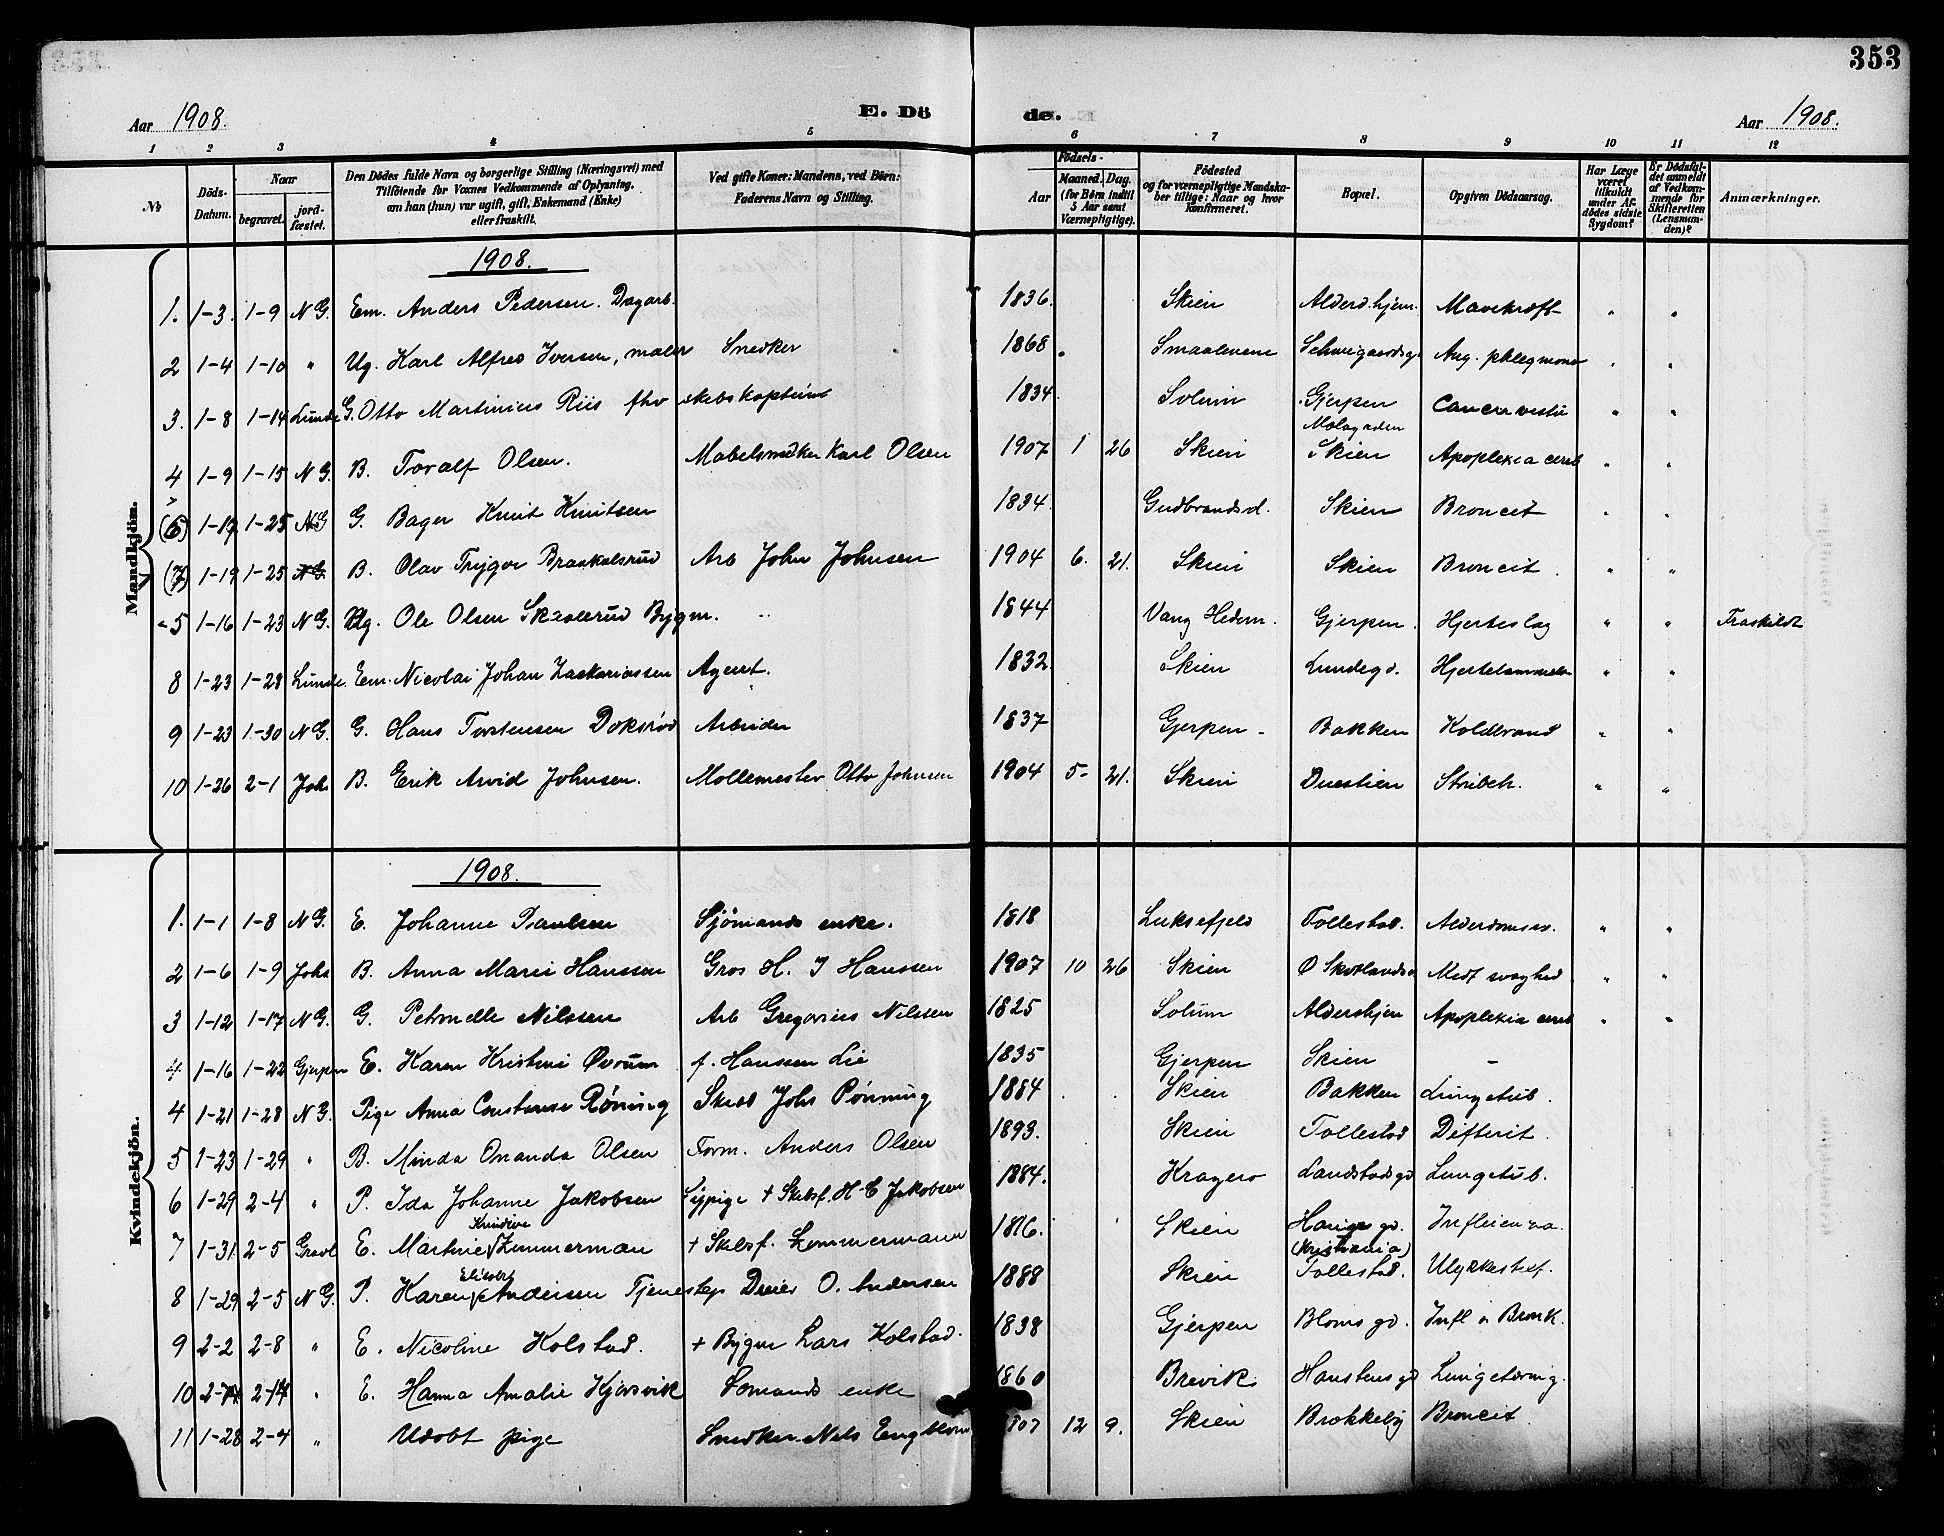 353
Aar 1908.
E. Döde.
Aar 1908.
1 2 3 4 5 6 7 8 9 10 11 12
№
Döds-Datum.
Naar
begravet.
jord-fæstet.
Den Dödes fulde Navn og borgerlige Stilling (Næringsvei) med Tilföiende for Voxnes Vedkommende af Oplysning, om han (hun) var ugift, gift, Enkemand (Enke) eller fraskilt.
Ved gifte Koner: Mandens, ved Börn: Faderens Navn og Stilling.
Födsels-
Aar
Maaned. Dag.
(for Börn indtil 5 Aar samt Værnepligtige).
Födested og for værnepligtige Mandskaber tillige: Naar og hvor Konfirmeret.
Bopæl.
Opgiven Dödsaarsag.
Har Læge været tilkaldt under Afdödes sidste Sygdom?
Er Dödsfaldet anmeldt af Vedkommende for Skifteretten (Lensmanden)?
Anmærkninger.
Mandkjön.
1908.
1. 1-3. 1-9 N G. Em. Anders Pedersen. Dagarb. 1836. Skien Alderd.hjem. Mavekræft " "
2 1-4 1-10 " Ug. Karl Alfred Iversen, maler Snedker 1868 Smaalenene Schweigaardsg. Ang. phlegmone " "
3. 1-8 1-14 Lunde G. Otto Martinius Riis fhv skibskaptein 1834 Solum Gjerpen Cancer " "
4 1-9 1-15 N G. B. Toralf Olsen. Møbelsnedker Karl Olsen 1907 1 26 Skien Skien Apoplexia cereb " "
(6) 1-17 1-25 N G G. Bager Knut Knutsen 1834 Gudbrandsd. Skien Broncit " "
(7) 1-19 1-25 N G. B. Olav Trygve Braskelsrud Arb John Johnsen 1904 6. 21. Skien Skien Broncit. " "
5 1-16 1-23 N G. Ug. Ole Olsen Skiølerud Bygm. 1844 Vang Hedem. Gjerpen. Hjerteslag " " Fraskildt
8 1-23 1-28 Lunde. Em. Nicolai Johan Zackariassen Agent. 1832. Skien Lundegd. Hjertelammelse " "
9 1-23 1-30 N G. G. Hans Torstensen Doksrød Arbeider 1837 Gjerpen Bakken Koldbrand " "
10 1-26 2-1 Joh. B. Erik Arvid Johnsen. Møllemester Otto Johnsen 1904 5- 21. Skien Duestien Strubeh. " "
Kvindekjön.
1908.
1. 1-1 1-8 N G. E. Johanne Paulsen Sjømands enke. 1818 Luksefjeld Follestad. Alderdomssv. " "
2 1-6 1-9 Johs B. Anna Marie Hanssen Gros H. J Hanssen 1907 10 26 Skien Ø Skotlandsv Medf svaghed " "
3 1-12 1-17 N G. G. Petronelle Nilssen Arb Gregorius Nilssen 1825 Solum Aldershjem Apoplexia cereb " "
4 1-16 1-22 Gjerpen E. Karen Kristine Øvrum f. Hanssen Lie 1835 Gjerpen Skien -
4 1-21 1-28 N G. Pige Anna Constanse Rønning Skibb Johs Rønning 1884 Skien Bakken Lungetub.
5 1-23 1-29 " B. Minda Omanda Olsen Form. Anders Olsen 1893. Skien Follestad Difterit.
6 1-29 2-4 " P. Ida Johanne Jakobsen Sypige + Skibsf. H C Jakobsen 1884. Kragerø Landstadsgd Lungetub.
7 1-31 2-5 Gravl E. Martine Kundine Zimmerman + Skibsf. Zommermann 1816. Skien gd. (Kristiania) Influenza.
8 1-29 2-5 N G. P. Karen Elisabt Andersen Tjenestep Dreier O. Andersen 1888 Skien Follestad. Ulykkestilf.
9 2-2 2-8 " E. Nicoline Kolstad. + Bygm Lars Kolstad. 1838 Gjerpen Blomsgd. Infl & Bronk.
10 2-7 2-14 " E. Hanna Amalie Kjørsvik Sømands enke 1860 Brevik Hanstensgd Lungetæring.
11 1-28 2-4 " Udøbt pige Snedker Nils Engblom 1907 12 9. Skien Brekkeby Broncit.